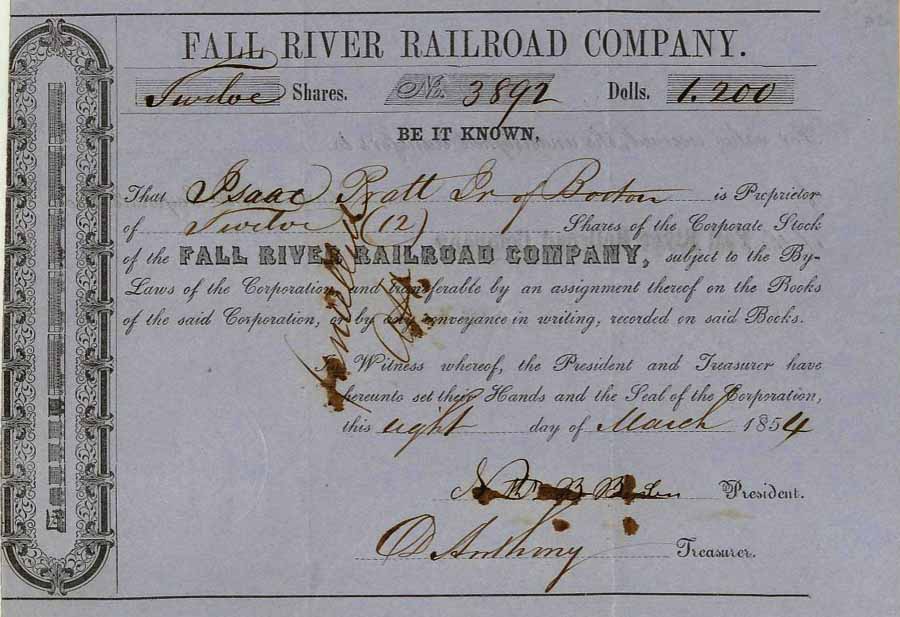 FALL RIVER RAILROAD COMPANY.
Twelve Shares. No. 3892 Dolls. 1.200
BE IT KNOWN,
That Isaac Pratt Jr of Boston is Proprietor
of Twelve (12) Shares of the Corporate Stock
of the FALL RIVER RAILROAD COMPANY, subject to the By-
Laws of the Corporation and transferable by an assignment thereof on the Books
of the said Corporation, or by any conveyance in writing, recorded on said Books.
In Witness whereof, the President and Treasurer have
hereunto set their Hands and the Seal of the Corporation,
this eight day of March 1854
President.
D Anthony Treasurer.
Cancelled